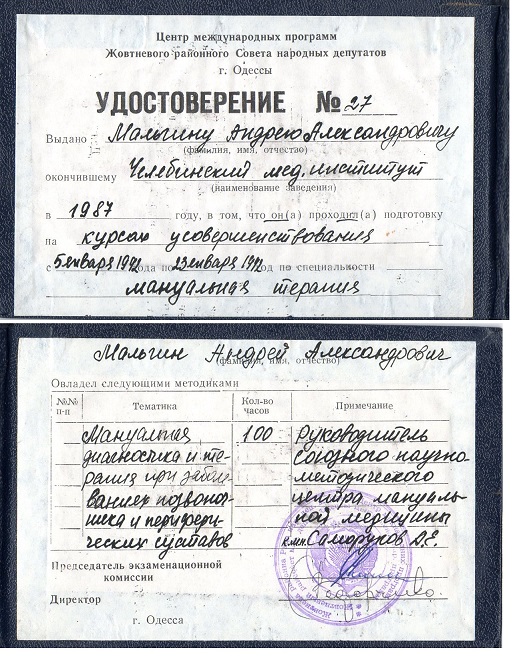 Центр международных программ
Жовтневого районного Совета народных депутатов
г. Одессы
УДОСТОВЕРЕНИЕ № 27
Выдано Мальгину Андрею Александровичу
(фамилия, имя, отчество)
окончившему Челябинский мед. институт
(наименование заведения)
в 1987 году, в том, что он(а) проходил(а) подготовку
на курсах усовершенствования
с 5 января 1992 года по 23 января 1992 год по специальности
мануальная терапия
Мальгин Андрей Александрович
(фамилия, имя, отчество)
Овладел следующими методиками
№№ п-п Тематика Кол-во часов Примечание
Мануальная 100 Руководитель
диагностика и те- союзного научно-
рапия при забол- методического
ваниях позвоноч- центра мануаль-
ника и перифери- ной медицины
ческих суставов к.м.н. Саморуков А.Е.
Председатель экзаменационной
комиссии
Директор
г. Одесса